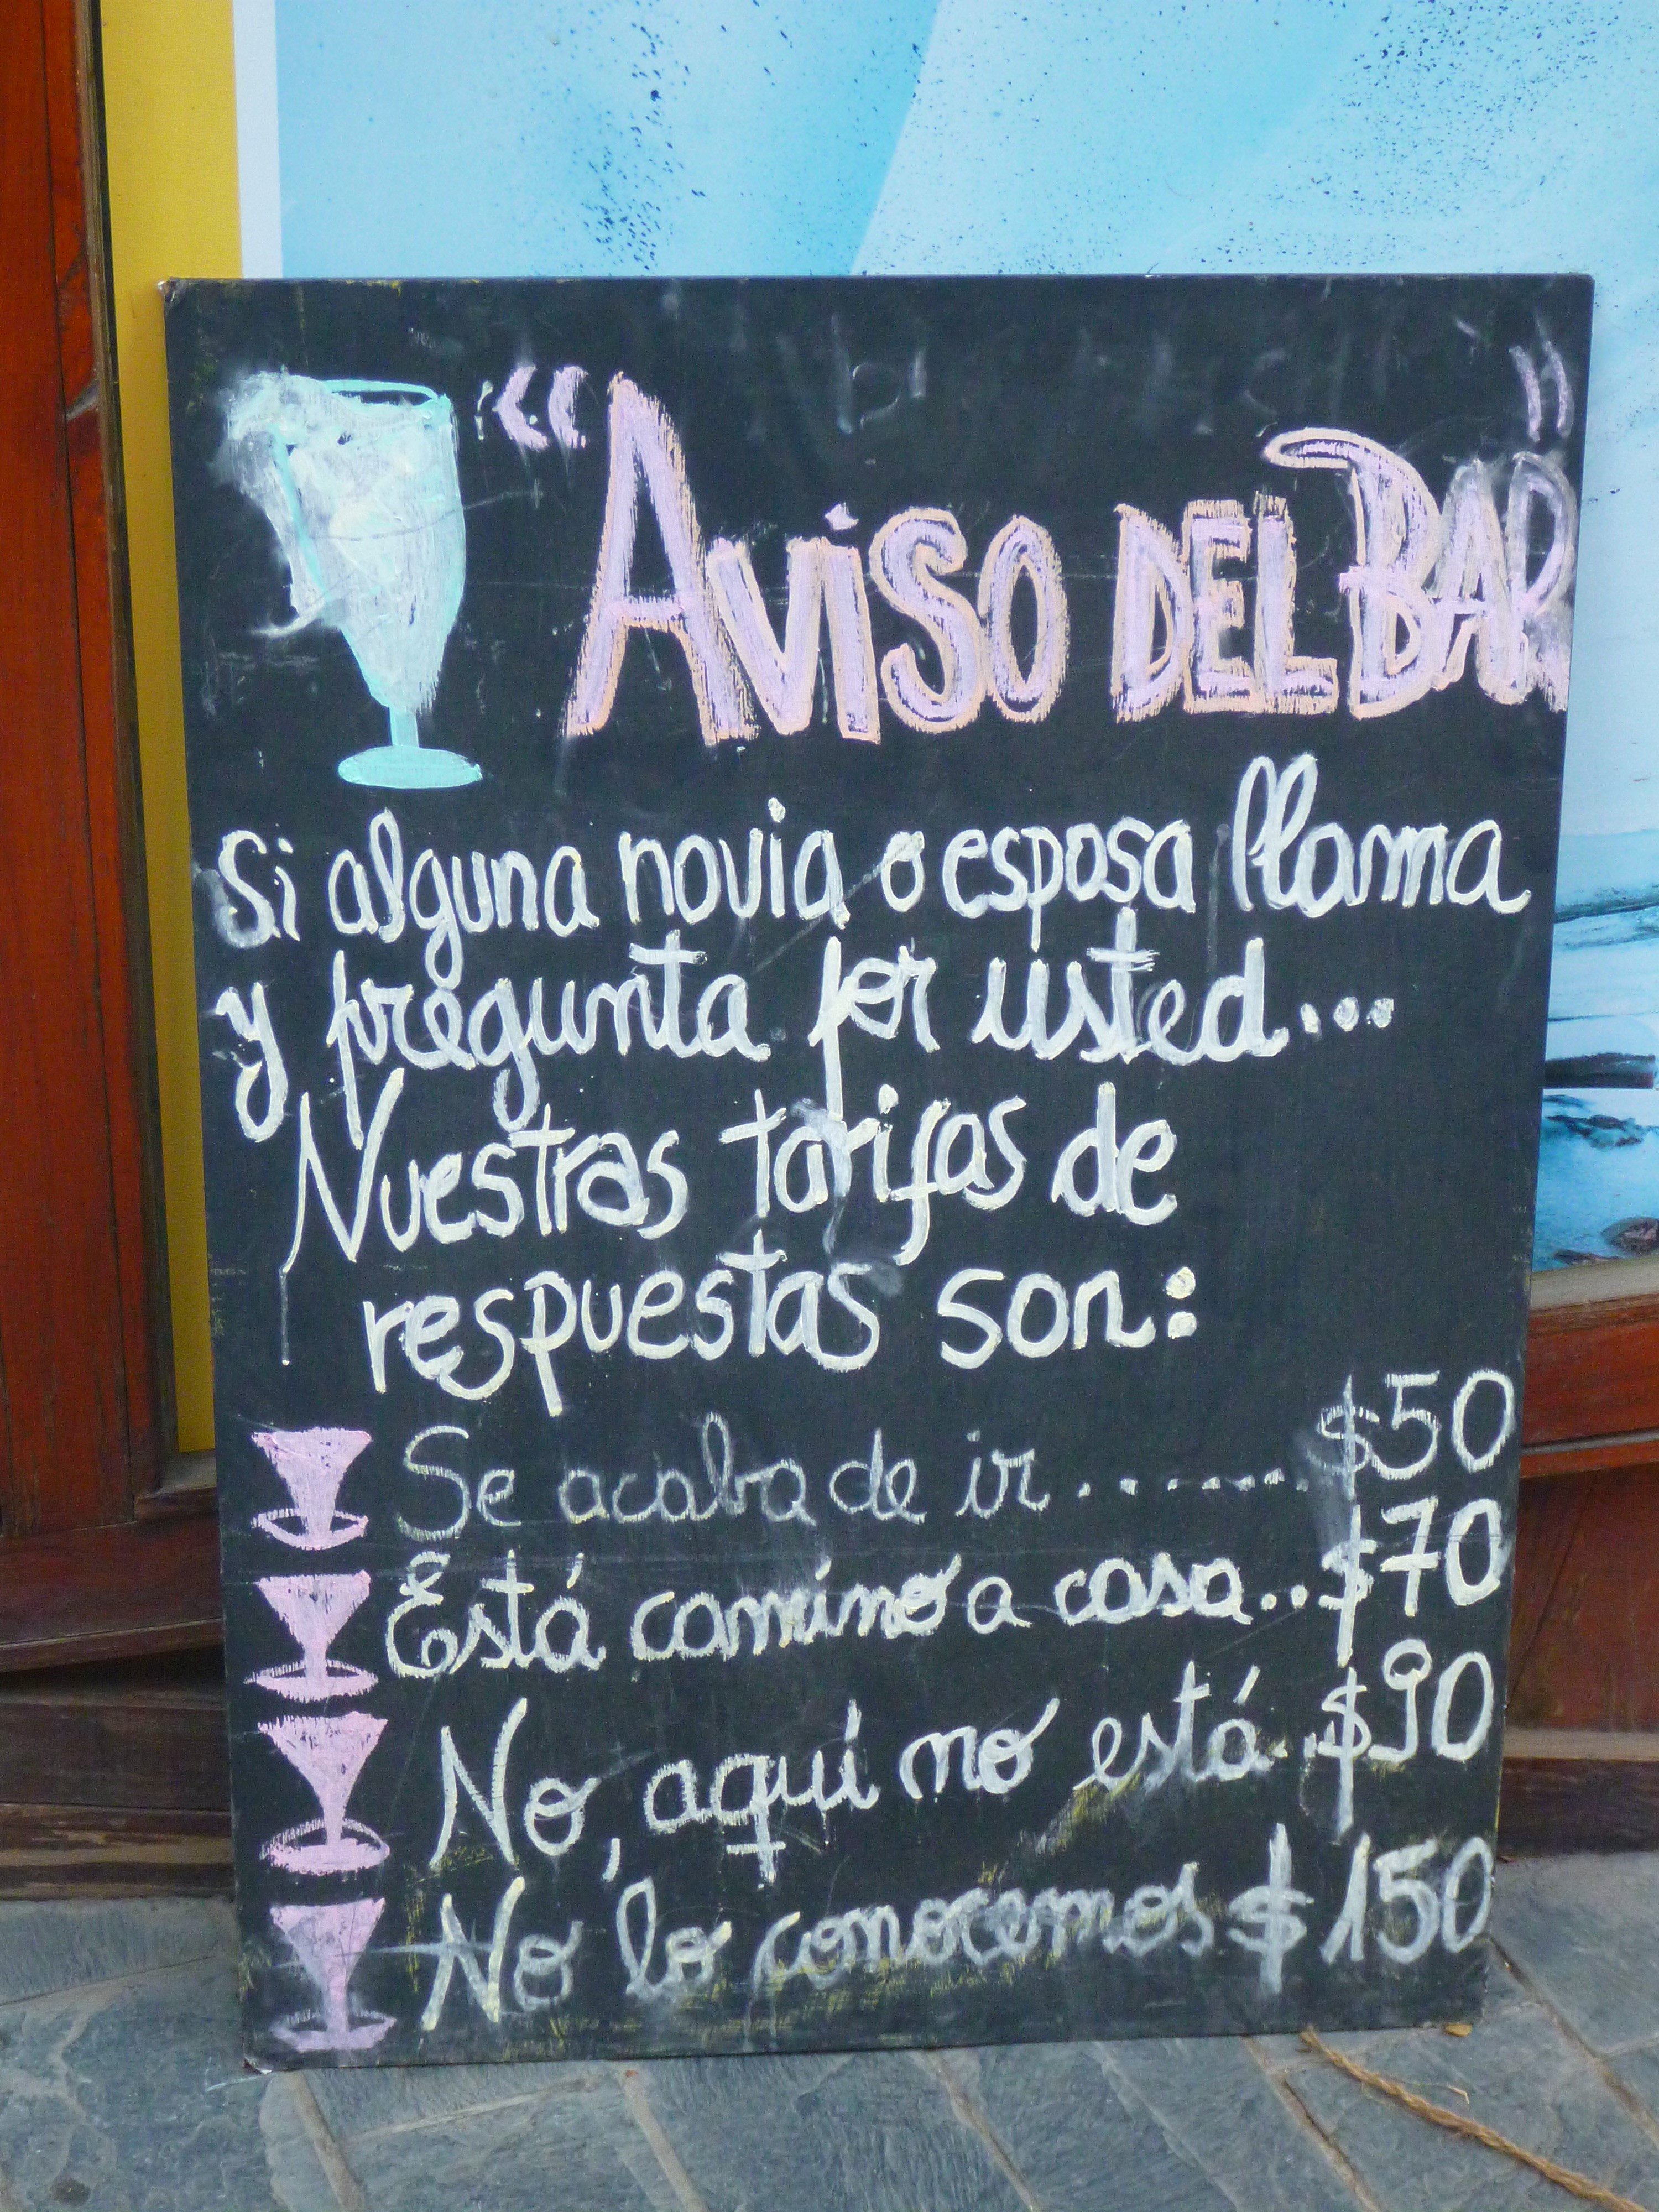 “Aviso del Bar”
Si alguna novia o esposa llama
y pregunta por usted...
Nuestras tarifas de
respuestas son:
Se acaba de ir........$50
Está camino a casa..$70
No, aquí no está..$90
No lo conocemos $150